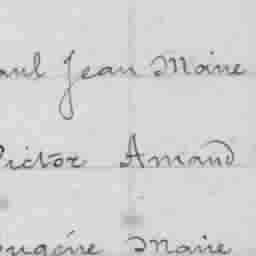 aul Jean Marie
Victor Amand
Eugène Marie